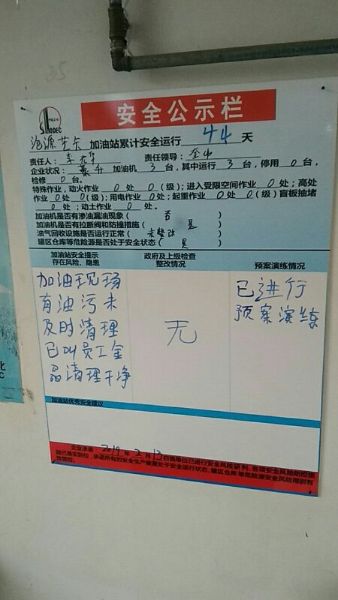 SINOPEC
安全公示栏
沧源芒卡 加油站累计安全运行 44 天
责任人： 责任领导：
企业状况： 加油机 3 台，其中运行 3 台，停用 0 台，
检修 0 台。
特殊作业，动火作业 0 处 0（级）；进入受限空间作业 0 处；高处
作业 0 处 0（级）；用电作业 0 处；起重作业 0 处 0（级）盲板抽堵
0 处；动土作业 0 处。
加油机是否有渗油漏油现象（ 否 ）
加油机是否有拉断阀和防撞措施（ 是 ）
油气回收设施是否运行正常（ ）
罐区仓库等危险源是否处于安全状态（ 是 ）
加油站安全提示
存在风险、隐患
政府及上级检查
整改情况
预案演练情况
加油现场
有油污未
及时清理
已叫员工金
晶清理干净
无
已进行
预案演练
加油站优秀安全建议
企业承诺： 2019 年 2 月 13 日